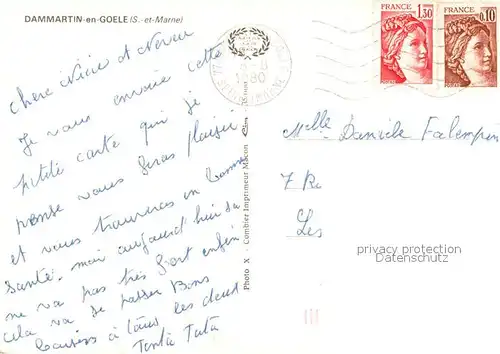 DAMMARTIN-en-GOELE (S.-et-Marne)
1,30
0,10
1980
Chère Nièce et Neveu
Je vous envoie cette
petite carte qui je
pense vous feras plaisir
et vous trouveras en bonne
santé. moi aujourd'hui sa
ne va pas très fort enfin
cela va se passer Bons
baisers à tous les deux
Tonta Tata
Photo X - Combier Imprimeur Macon
Melle Danièle Falempin
7 R
Les
privacy protection
Datenschutz